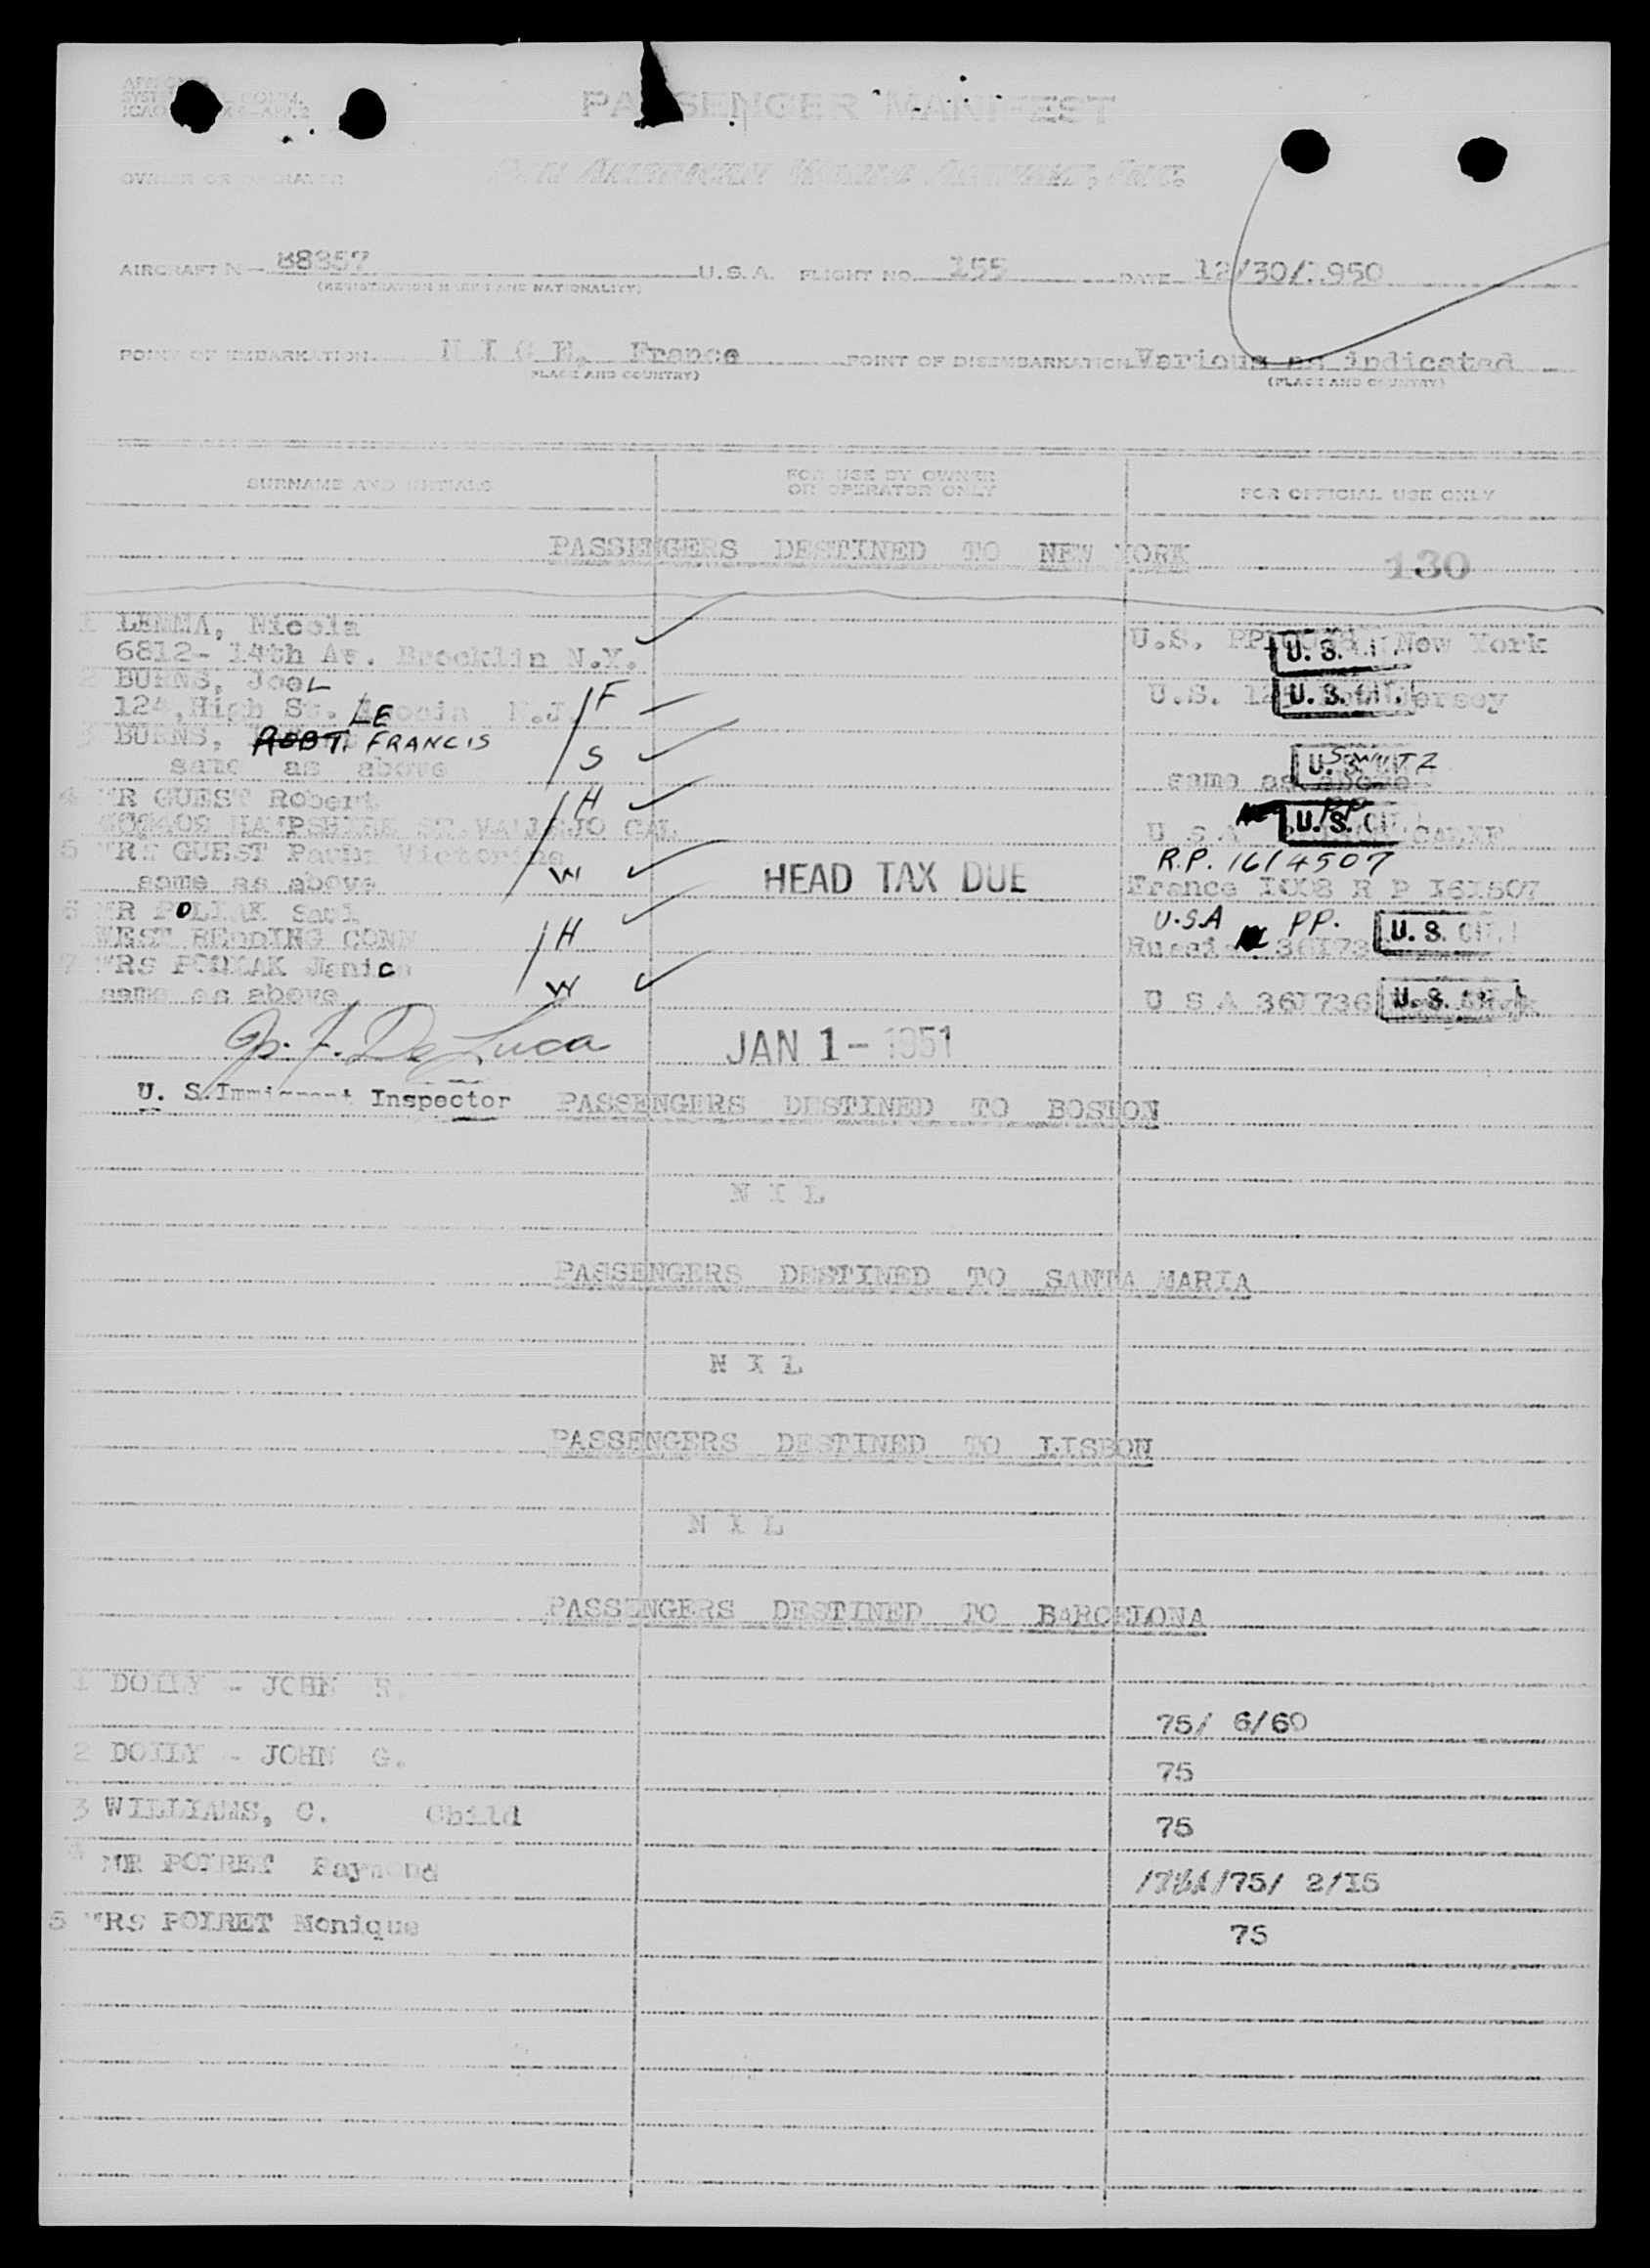 PASSENGER MANIFEST
PAN AMERICAN WORLD AIRWAYS, INC.
AIRCRAFT N- 88857 U.S.A. FLIGHT NO. 155 DATE 12/30/1950
(REGISTRATION MARKS AND NATIONALITY)
POINT OF EMBARKATION N I C E, France POINT OF DISEMBARKATION Various as indicated
(PLACE AND COUNTRY) (PLACE AND COUNTRY)
SURNAME AND INITIALS FOR USE BY OWNER OR OPERATOR ONLY FOR OFFICIAL USE ONLY
PASSENGERS DESTINED TO NEW YORK
130
1 LEMMA, Nicola
6812- 14th Av. Brocklin N.Y. U.S. PP New York U.S.
2 BURNS, JoeL
124, High St. N.J. F U.S. Jersey U.S. CIT.
3 BURNS, ROBT. LE FRANCIS
same as above S same as above U.S.
4 MR GUEST Robert H
HAMPSHIRE ST. VALLEJO CAL U S A PP U.S. CIT. CALIF
5 MRS GUEST Victorine R.P. 1614507
same as above W HEAD TAX DUE France R P 161507
6 MR POLLAK Saul U.S.A PP.
WEST REDDING CONN H Russia U.S. CIT.
7 MRS POLLAK Janice
same as above W U S A 361736 U.S. CIT.
J. F. De Luca JAN 1 - 1951
U. S. Immigrant Inspector PASSENGERS DESTINED TO BOSTON
N I L
PASSENGERS DESTINED TO SANTA MARIA
N I L
PASSENGERS DESTINED TO LISBON
N I L
PASSENGERS DESTINED TO BARCELONA
1 DOILY - JOHN
75/ 6/60
2 DOILY - JOHN G. 75
3 WILLIAMS, C. Child 75
4 MR POIRET Raymond /75/ 2/15
5 MRS POIRET Monique 75